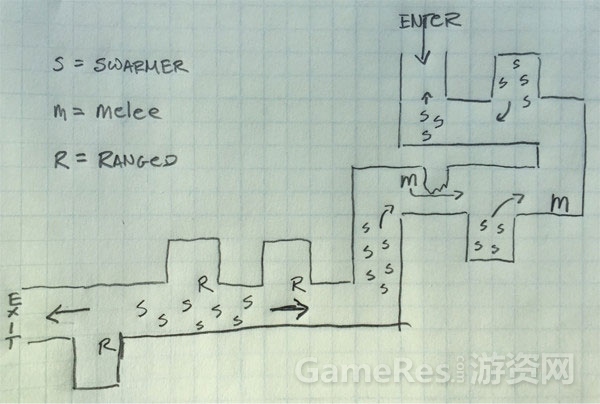 ENTER
S = SWARMER
m = melee
R = RANGED
S
S S
S
S
S
S
m
m
S S
S S
S
S
S
S
S
S
R
R
S S S S S S S
R
EXIT
GameRes.com 游资网